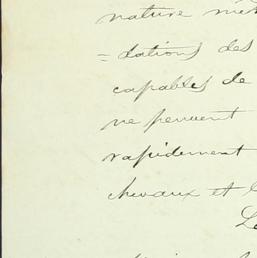 nature
= dations des
capables de
ne peuvent
rapidement
chevaux et